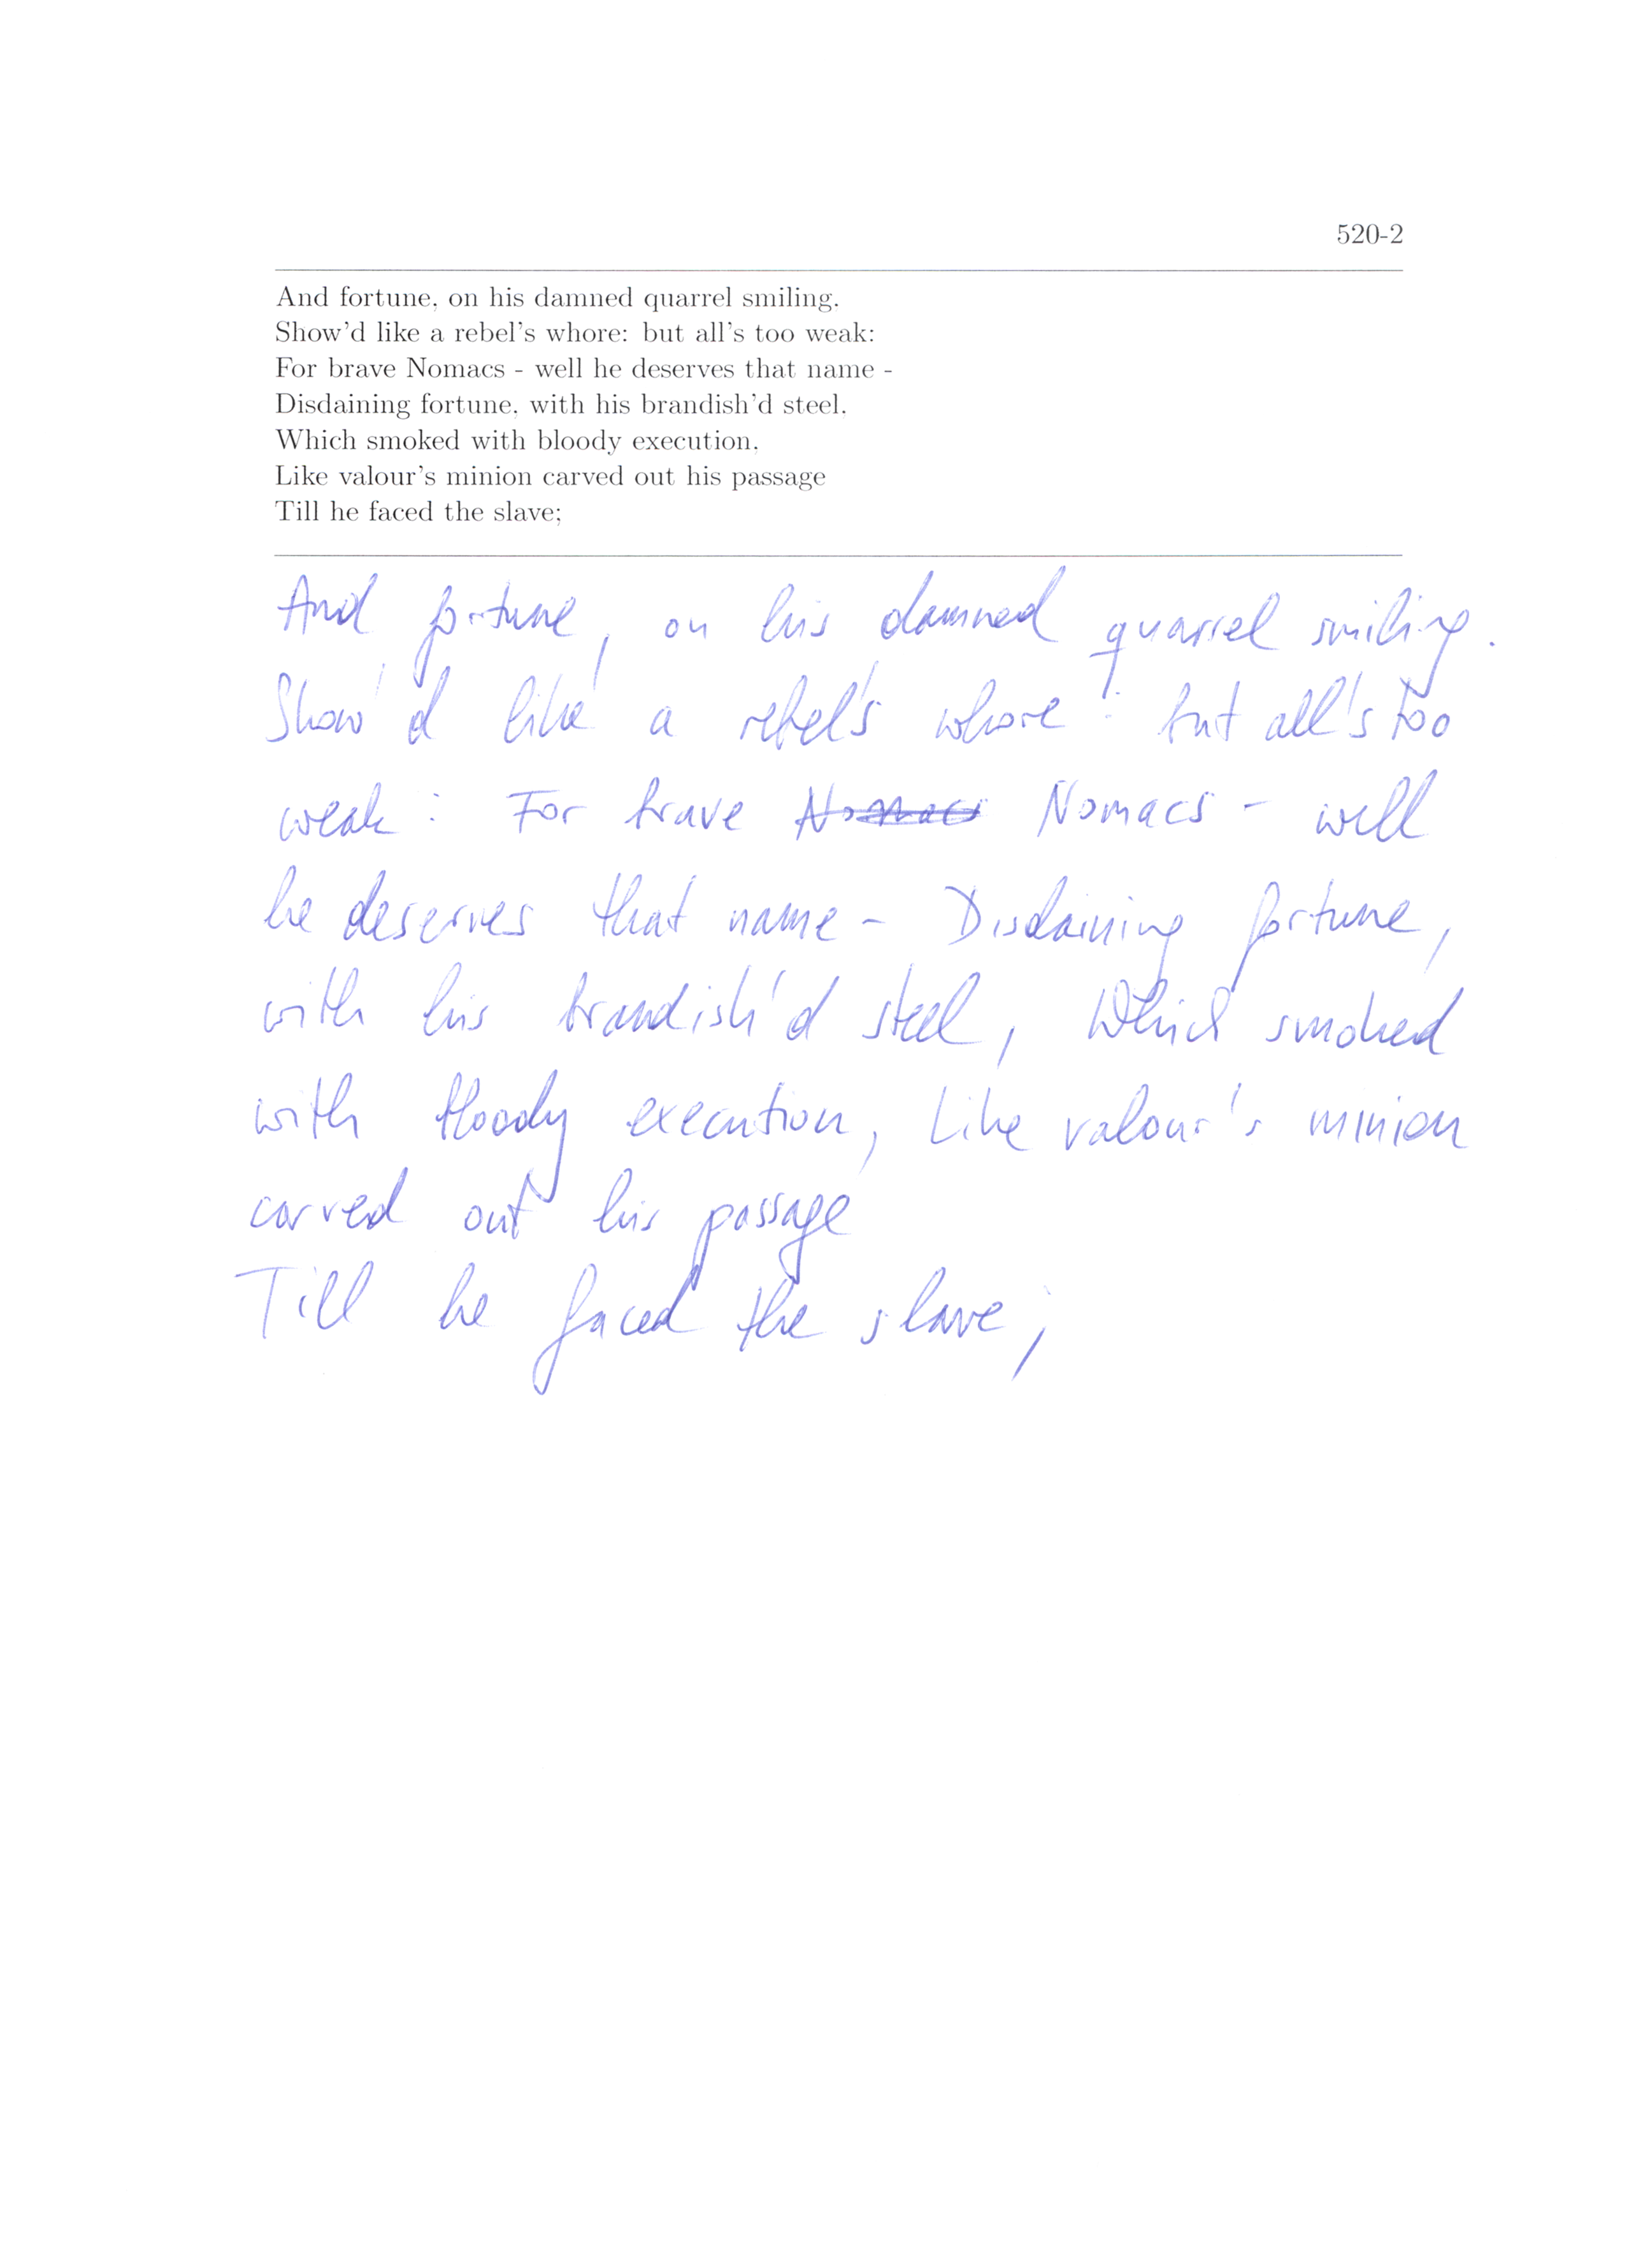 520-2
And fortune, on his damned quarrel smiling,
Show'd like a rebel's whore: but all's too weak:
For brave Nomacs - well he deserves that name -
Disdaining fortune, with his brandish'd steel,
Which smoked with bloody execution,
Like valour's minion carved out his passage
Till he faced the slave;
And fortune, on his damned quarrel smiling.
Show'd like a rebel's whore : but all's too
weak : For brave Nomacs Nomacs - well
he deserves that name - Disdaining fortune,
with his brandish'd steel, Which smoked
with bloody execution, Like valour's minion
carved out his passage
Till he faced the slave;